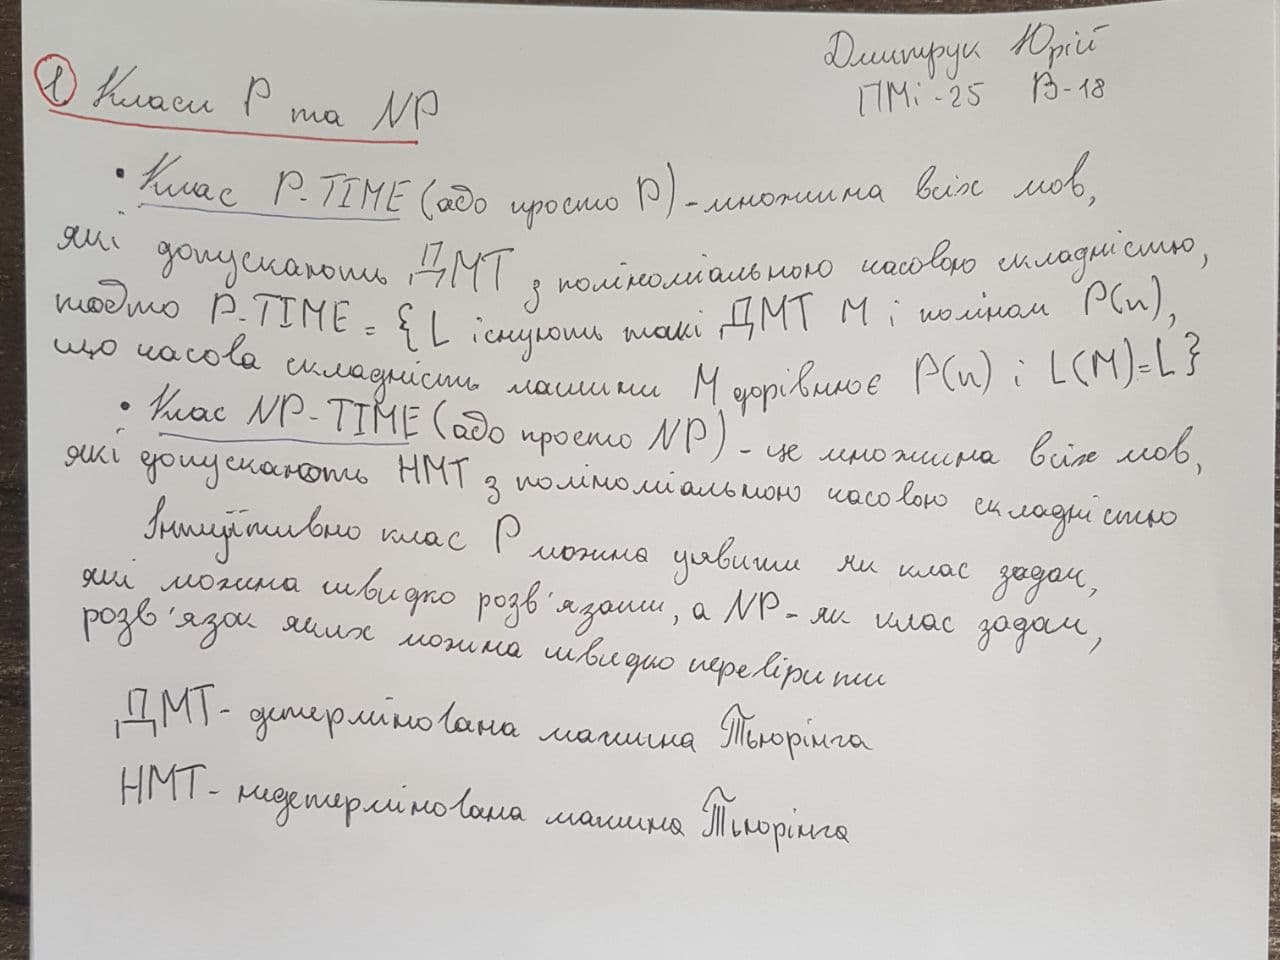 Дмитрук Юрій
ПМі-25 В-18
1. Класи P та NP
• Клас P-TIME (або просто P) - множина всіх мов,
які допускають ДМТ з поліноміальною часовою складністю,
тобто P-TIME = { L існують такі ДМТ M і поліном P(n),
що часова складність машини M дорівнює P(n) і L(M)=L }
• Клас NP-TIME (або просто NP) - це множина всіх мов,
які допускають НМТ з поліноміальною часовою складністю
Інтуїтивно клас P можна уявити як клас задач,
які можна швидко розв'язати, а NP - як клас задач,
розв'язок яких можна швидко перевірити
ДМТ - детермінована машина Тьюрінга
НМТ - недетермінована машина Тьюрінга